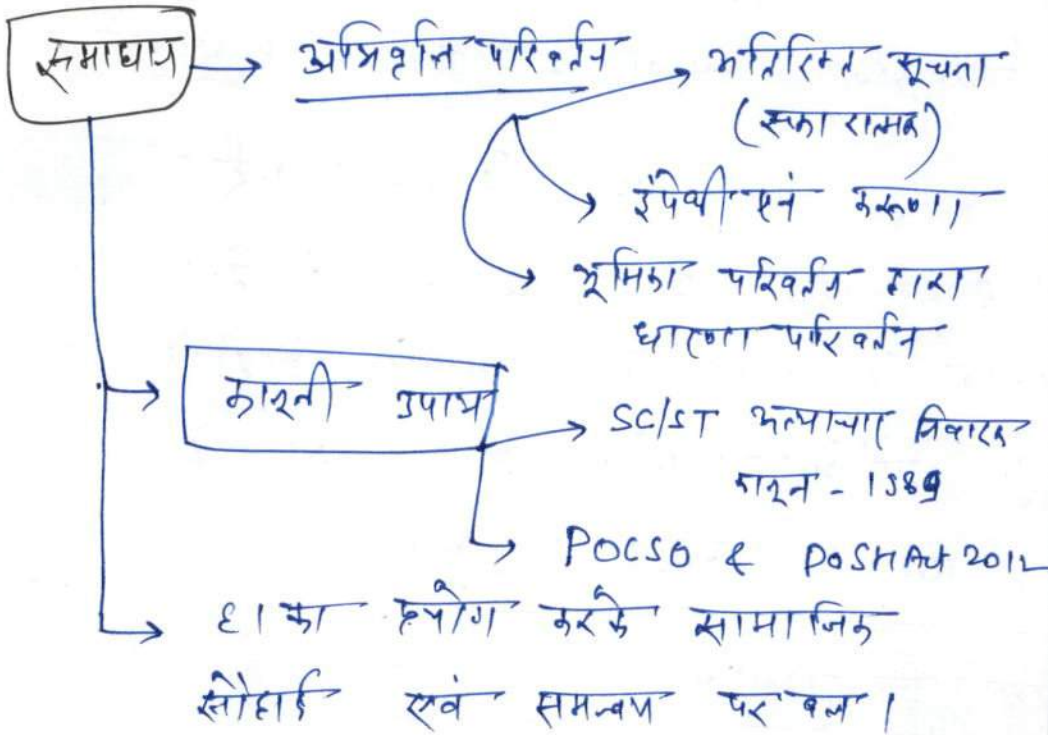 समाधान → अभिवृत्ति परिवर्तन → अतिरिक्त सूचना
(सकारात्मक)
→ इंपेथी एवं करुणा
→ भूमिका परिवर्तन द्वारा
धारणा परिवर्तन
→ कानूनी उपाय
→ SC/ST अत्याचार निवारक
कानून - 1989
→ POCSO & POSH Act 2012
→ EI का प्रयोग करके सामाजिक
सौहार्द एवं समन्वय पर बल ।